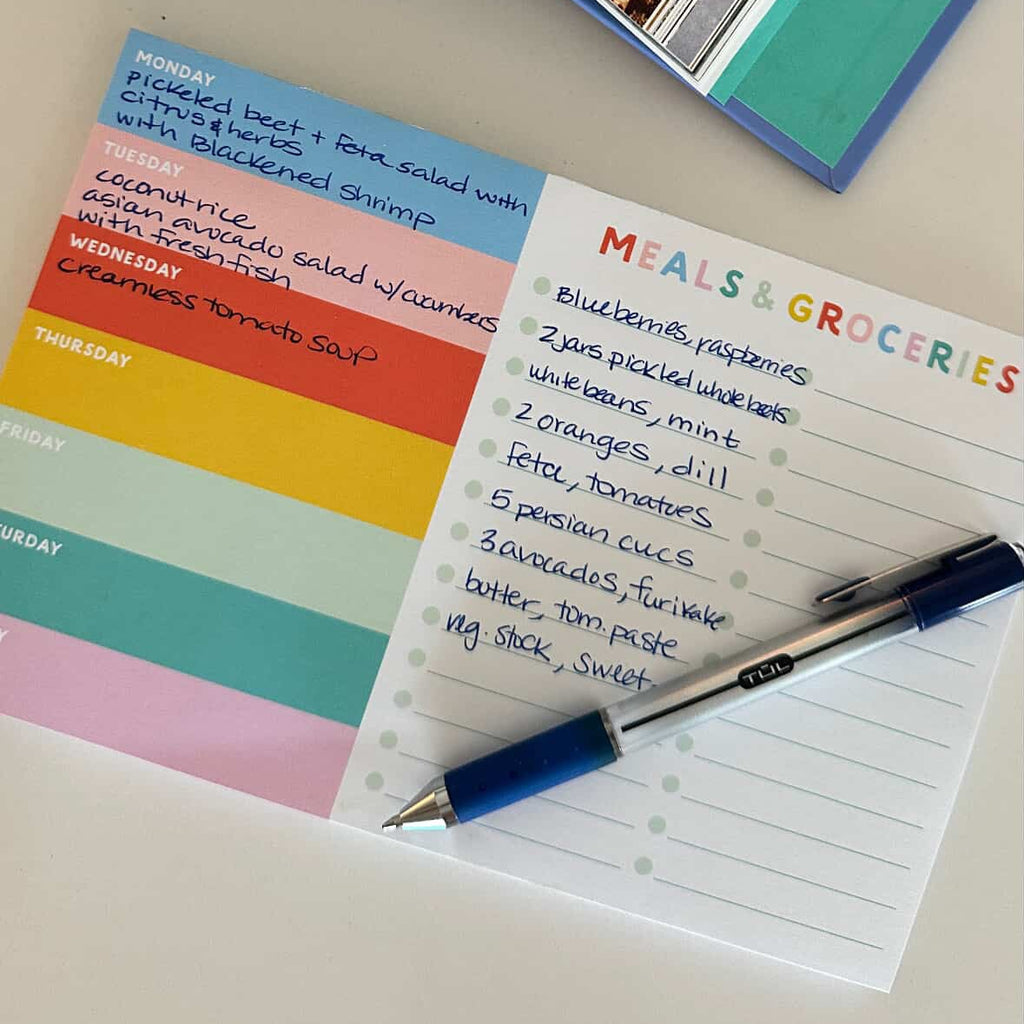 MONDAY
pickeled beet + feta salad with
citrus & herbs
with Blackened shrimp
TUESDAY
coconut rice
asian avocado salad w/cucumbers
with fresh fish
WEDNESDAY
creamless tomato soup
THURSDAY
FRIDAY
TURDAY
Y
MEALS & GROCERIES
Blueberries, raspberries
2 jars pickled whole beets
white beans, mint
2 oranges, dill
feta, tomatoes
5 persian cucs
3 avocados, furikake
butter, tom. paste
veg. stock, sweet
TUL